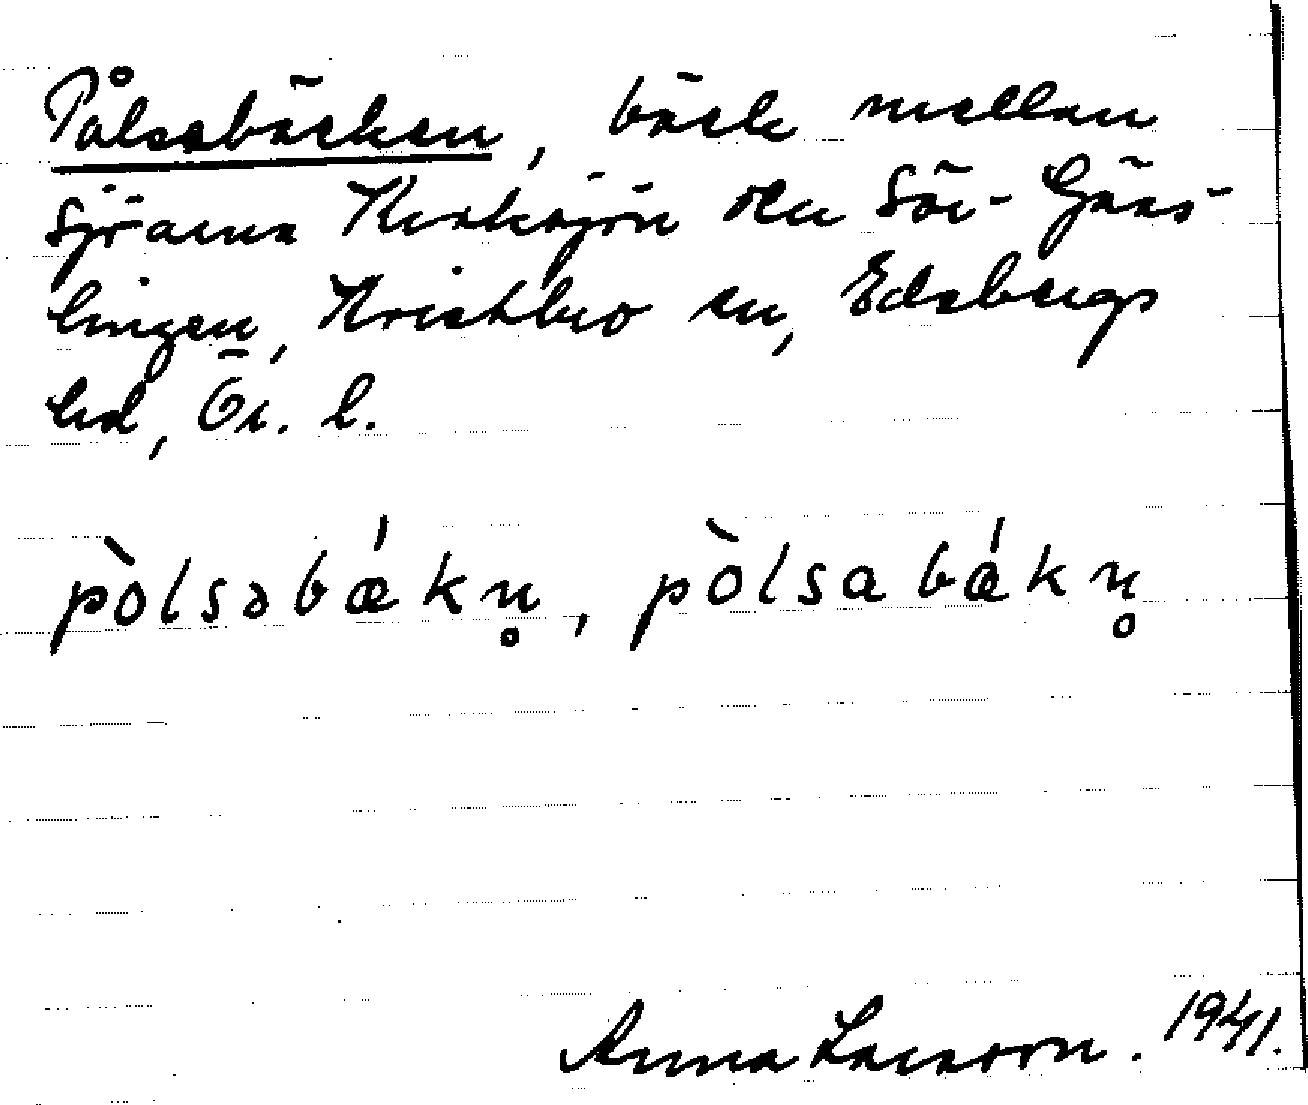 Pålsabäcken, bäck mellan
sjöarna Korksjön och Sör-Gäns-
lingen, Kvistbro sn, Edsbergs
hd, Ör. l.
pòlsəbǽkn̥, pòlsabǽkn̥
Anna Larsson. 1941.